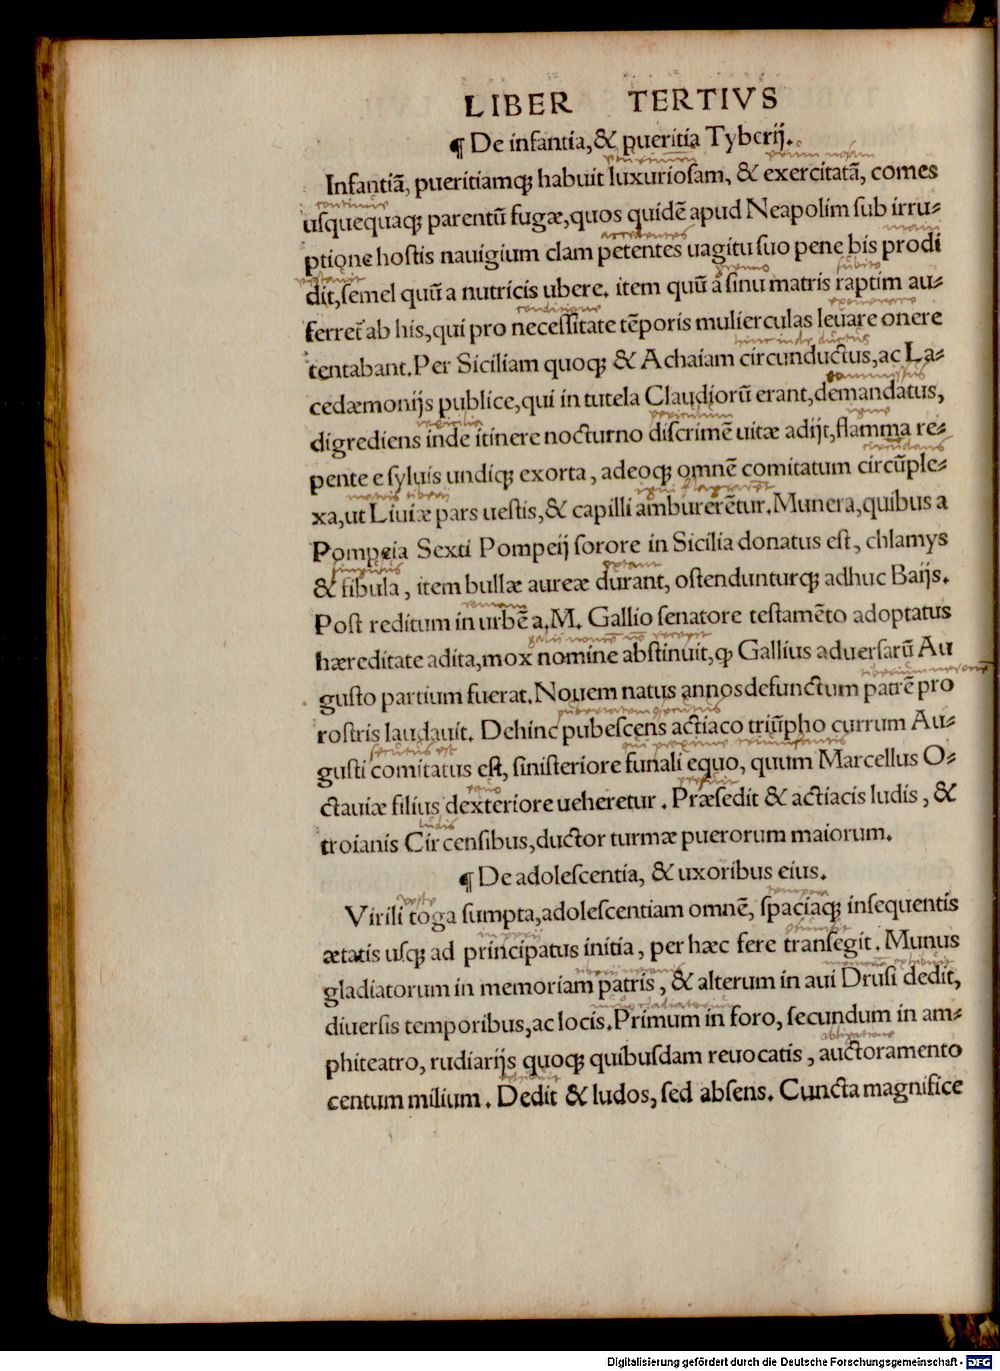 LIBER TERTIVS
¶ De infantia,& pueritia Tyberij.
Infantiã, pueritiamq; habuit luxuriosam, & exercitatã, comes
continue
usquequaq; parentũ fugæ,quos quidẽ apud Neapolim sub irru-
accedentes
ptione hostis nauigium clam petentes uagitu suo pene bis prodi
gremio subito
dit,semel quũ a nutricis ubere. item quũ a sinu matris raptim au-
exonerare
ferret ab his,qui pro necessitate tẽporis mulierculas leuare onere
hinc inde ductus
tentabant.Per Siciliam quoq; & Achaiam circunductus,ac La-
commissus
cedæmonijs publice,qui in tutela Claudiorũ erant,demandatus,
periculum igne
digrediens inde itinere nocturno discrimẽ uitæ adijt,flamma re-
circũdans
pente e syluis undiq; exorta, adeoq; omnẽ comitatum circũple-
matris tiberij igni flagrarẽt
xa,ut Liuiæ pars uestis,& capilli amburerẽtur.Munera,quibus a
Pompeia Sexti Pompeij sorore in Sicilia donatus est, chlamys
extant
& fibula, item bullæ aureæ durant, ostendunturq; adhuc Baijs.
romam
Post reditum in urbẽ a.M. Gallio senatore testamẽto adoptatus
hæreditate adita,mox nomine abstinuit,q Gallius aduersarũ Au
gusto partium fuerat.Nouem natus annos defunctum patrẽ pro
rostris laudauit. Dehinc pubescens actiaco triũpho currum Au-
secutus est
gusti comitatus est, sinisteriore funali equo, quum Marcellus O-
equo prefuit
ctauiæ filius dexteriore ueheretur. Præsedit & actiacis ludis, &
ludis
troianis Circensibus,ductor turmæ puerorum maiorum.
¶ De adolescentia, & uxoribus eius.
tempora
Virili toga sumpta,adolescentiam omnẽ, spaciaq; insequentis
imperij
ætatis usq; ad principatus initia, per hæc fere transegit. Munus
gladiatorum in memoriam patris, & alterum in aui Drusi dedit,
diuersis temporibus,ac locis.Primum in foro, secundum in am-
obligatione
phiteatro, rudiarijs quoq; quibusdam reuocatis, auctoramento
centum milium. Dedit & ludos, sed absens. Cuncta magnifice
Digitalisierung gefördert durch die Deutsche Forschungsgemeinschaft - DFG